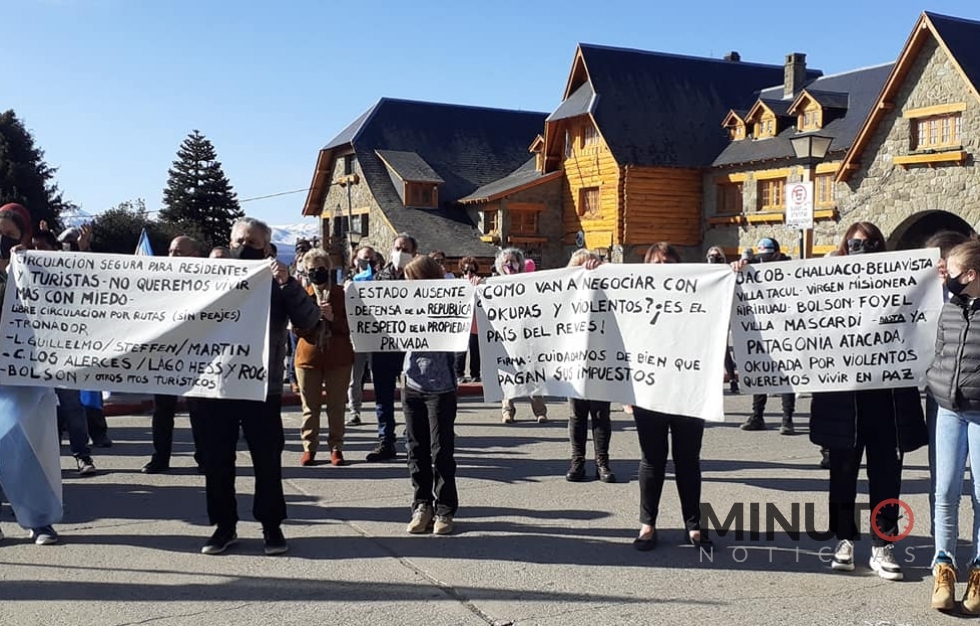 CIRCULACIÓN SEGURA PARA RESIDENTES
Y TURISTAS- NO QUEREMOS VIVIR
MAS CON MIEDO-
LIBRE CIRCULACION POR RUTAS (SIN PEAJES)
- TRONADOR
- L. GUILLELMO / STEFFEN / MARTIN
- C. LOS ALERCES / LAGO HESS Y ROCA
- BOLSON Y OTROS PTOS TURÍSTICOS
. ESTADO AUSENTE
. DEFENSA DE LA REPUBLICA
. RESPETO DE LA PROPIEDAD
PRIVADA
COMO VAN A NEGOCIAR CON
OKUPAS Y VIOLENTOS? ¡ES EL
PAÍS DEL REVES!
FIRMA: CIUDADANOS DE BIEN QUE
PAGAN SUS IMPUESTOS
JACOB - CHALHUACO - BELLAVISTA
VILLA TACUL - VIRGEN MISIONERA
ÑIRIHUAU - BOLSON - FOYEL
VILLA MASCARDI - BASTA YA
PATAGONIA ATACADA,
OKUPADA POR VIOLENTOS
QUEREMOS VIVIR EN PAZ
MINUTO
NOTICIAS